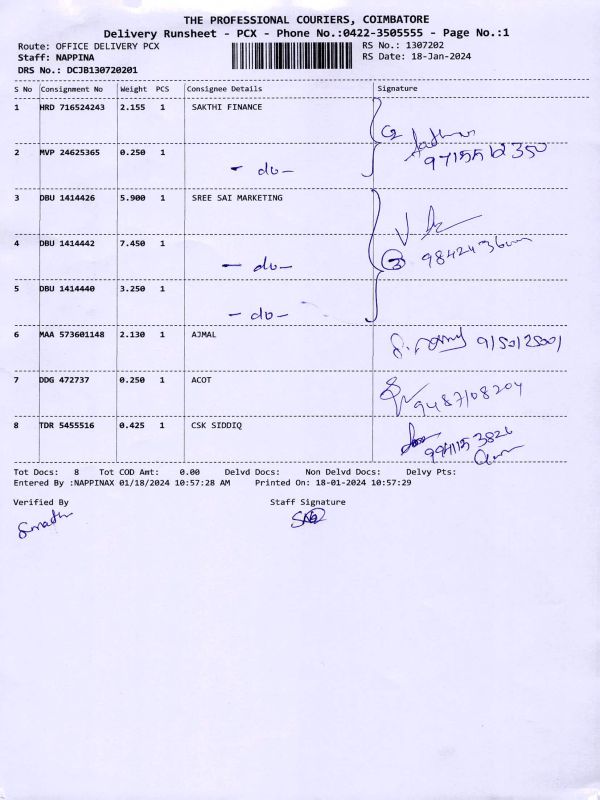 THE PROFESSIONAL COURIERS, COIMBATORE
Delivery Runsheet - PCX - Phone No.:0422-3505555 - Page No.:1
Route: OFFICE DELIVERY PCX RS No.: 1307202
Staff: NAPPINA RS Date: 18-Jan-2024
DRS No.: DCJB130720201
S No Consignment No Weight PCS Consignee Details Signature
1 HRD 716524243 2.155 1 SAKTHI FINANCE
2
2 MVP 24625365 0.250 1 - do -
3 DBU 1414426 5.900 1 SREE SAI MARKETING
4 DBU 1414442 7.450 1 - do -
3
5 DBU 1414440 3.250 1 - do -
6 MAA 573601148 2.130 1 AJMAL
7 DDG 472737 0.250 1 ACOT
9487108204
8 TDR 5455516 0.425 1 CSK SIDDIQ
Tot Docs: 8 Tot COD Amt: 0.00 Delvd Docs: Non Delvd Docs: Delvy Pts:
Entered By :NAPPINAX 01/18/2024 10:57:28 AM Printed On: 18-01-2024 10:57:29
Verified By Staff Signature